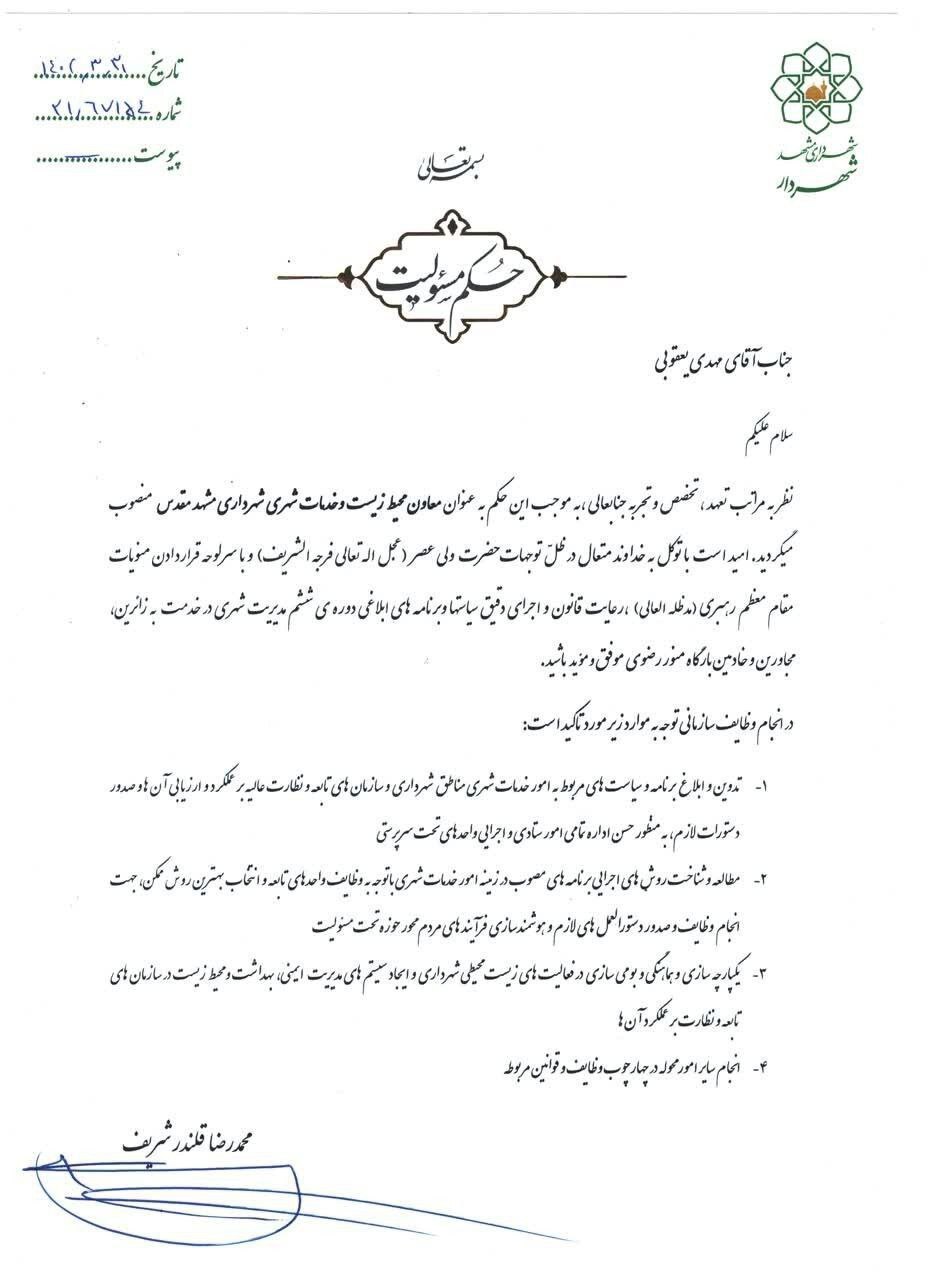 شهرداری مشهد
شهردار
تاریخ ۱۴۰۲,۳,۳۱
شماره ۲۱,۶۷۱۵۴
پیوست
بسمه تعالی
حکم مسئولیت
جناب آقای مهدی یعقوبی
سلام علیکم
نظر به مراتب تعهد، تخصص و تجربه جنابعالی، به موجب این حکم به عنوان معاون محیط زیست و خدمات شهری شهرداری مشهد مقدس منصوب
میگردید. امید است با توکل به خداوند متعال در ظلّ توجهات حضرت ولی عصر (عجل اله تعالی فرجه الشریف) و با سرلوحه قراردادن منویات
مقام معظم رهبری (مدظله العالی)، رعایت قانون و اجرای دقیق سیاستها وبرنامه های ابلاغی دوره ی ششم مدیریت شهری در خدمت به زائرین،
مجاورین و خادمین بارگاه منور رضوی موفق و مؤید باشید.
در انجام وظایف سازمانی توجه به موارد زیر مورد تاکید است:
۱- تدوین و ابلاغ برنامه و سیاست های مربوط به امور خدمات شهری مناطق شهرداری و سازمان های تابعه و نظارت عالیه بر عملکرد و ارزیابی آن ها و صدور
دستورات لازم، به منظور حسن اداره تمامی امور ستادی و اجرایی واحدهای تحت سرپرستی
۲- مطالعه و شناخت روش های اجرایی برنامه های مصوب در زمینه امور خدمات شهری باتوجه به وظایف واحدهای تابعه و انتخاب بهترین روش ممکن، جهت
انجام وظایف و صدور دستورالعمل های لازم و هوشمندسازی فرآیندهای مردم محور حوزه تحت مسئولیت
۳- یکپارچه سازی و هماهنگی و بومی سازی در فعالیت های زیست محیطی شهرداری و ایجاد سیستم های مدیریت ایمنی، بهداشت و محیط زیست در سازمان های
تابعه و نظارت بر عملکرد آن ها
۴- انجام سایر امور محوله در چهارچوب وظایف و قوانین مربوطه
محمدرضا قلندر شریف